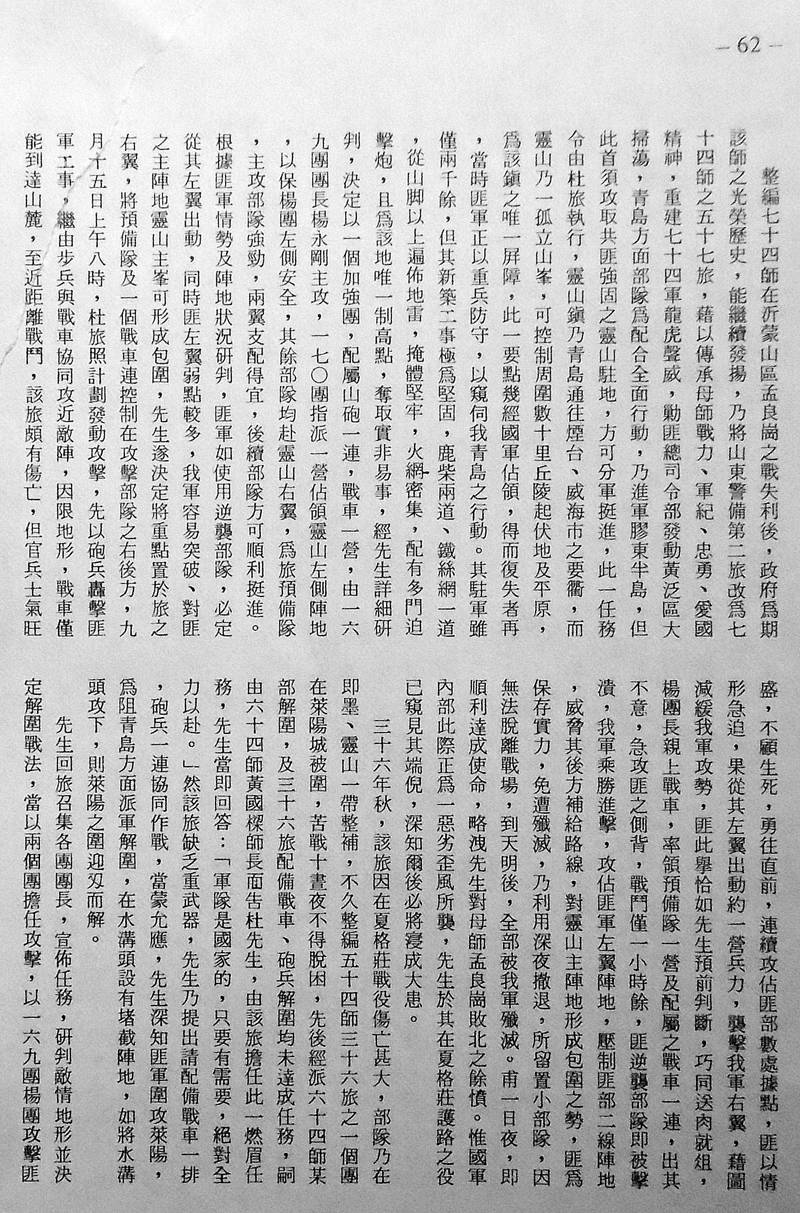 — 62 —
整編七十四師在沂蒙山區孟良崮之戰失利後，政府爲期
該師之光榮歷史，能繼續發揚，乃將山東警備第二旅改爲七
十四師之五十七旅，藉以傳承母師戰力、軍紀、忠勇、愛國
精神，重建七十四軍龍虎聲威，勦匪總司令部發動黃泛區大
掃蕩，青島方面部隊爲配合全面行動，乃進軍膠東半島，但
此首須攻取共匪強固之靈山駐地，方可分軍挺進，此一任務
令由杜旅執行，靈山鎮乃青島通往煙台、威海市之要衢，而
靈山乃一孤立山峯，可控制周圍數十里丘陵起伏地及平原，
爲該鎮之唯一屏障，此一要點幾經國軍佔領，得而復失者再
，當時匪軍正以重兵防守，以窺伺我青島之行動。其駐軍雖
僅兩千餘，但其新築工事極爲堅固，鹿柴兩道、鐵絲網一道
，從山脚以上遍佈地雷，掩體堅牢，火網密集，配有多門迫
擊炮，且爲該地唯一制高點，奪取實非易事，經先生詳細研
判，決定以一個加強團，配屬山砲一連，戰車一營，由一六
九團團長楊永剛主攻，一七〇團指派一營佔領靈山左側陣地
，以保楊團左側安全，其餘部隊均赴靈山右翼，爲旅預備隊
，主攻部隊強勁，兩翼支配得宜，後續部隊方可順利挺進。
根據匪軍情勢及陣地狀況研判，匪軍如使用逆襲部隊，必定
從其左翼出動，同時匪左翼弱點較多，我軍容易突破、對匪
之主陣地靈山主峯可形成包圍，先生遂決定將重點置於旅之
右翼，將預備隊及一個戰車連控制在攻擊部隊之右後方，九
月十五日上午八時，杜旅照計劃發動攻擊，先以砲兵轟擊匪
軍工事，繼由步兵與戰車協同攻近敵陣，因限地形，戰車僅
能到達山麓，至近距離戰鬥，該旅頗有傷亡，但官兵士氣旺
盛，不顧生死，勇往直前，連續攻佔匪部數處據點，匪以情
形急迫，果從其左翼出動約一營兵力，襲擊我軍右翼，藉圖
減緩我軍攻勢，匪此舉恰如先生預前判斷，巧同送肉就俎，
楊團長親上戰車，率領預備隊一營及配屬之戰車一連，出其
不意，急攻匪之側背，戰鬥僅一小時餘，匪逆襲部隊即被擊
潰，我軍乘勝進擊，攻佔匪軍左翼陣地，壓制匪部二線陣地
，威脅其後方補給路線，對靈山主陣地形成包圍之勢，匪爲
保存實力，免遭殲滅，乃利用深夜撤退，所留置小部隊，因
無法脫離戰場，到天明後，全部被我軍殲滅。甫一日夜，即
順利達成使命，略洩先生對母師孟良崮敗北之餘憤。惟國軍
內部此際正爲一惡劣歪風所襲，先生於其在夏格莊護路之役
已窺見其端倪，深知爾後必將寖成大患。
三十六年秋，該旅因在夏格莊戰役傷亡甚大，部隊乃在
即墨、靈山一帶整補，不久整編五十四師三十六旅之一個團
在萊陽城被圍，苦戰十晝夜不得脫困，先後經派六十四師某
部解圍，及三十六旅配備戰車、砲兵解圍均未達成任務，嗣
由六十四師黃國樑師長面告杜先生，由該旅擔任此一燃眉任
務，先生當即回答：「軍隊是國家的，只要有需要，絕對全
力以赴。」然該旅缺乏重武器，先生乃提出請配備戰車一排
，砲兵一連協同作戰，當蒙允應，先生深知匪軍圍攻萊陽，
爲阻青島方面派軍解圍，在水溝頭設有堵截陣地，如將水溝
頭攻下，則萊陽之圍迎刃而解。
先生回旅召集各團團長，宣佈任務，研判敵情地形並決
定解圍戰法，當以兩個團擔任攻擊，以一六九團楊團攻擊匪